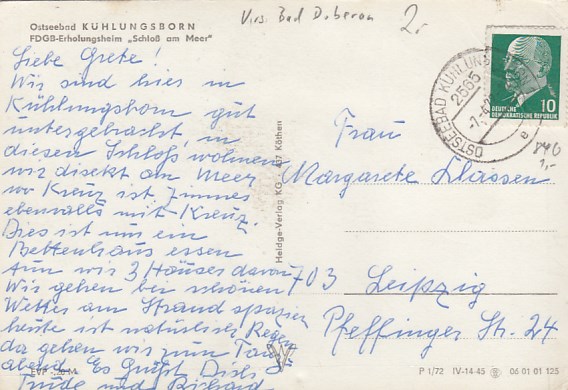 Ostseebad KÜHLUNGSBORN
FDGB-Erholungsheim „Schloß am Meer"
Krs. Bad Doberan
2,-
Liebe Grete!
Wir sind hier in
Kühlungsborn gut
untergebracht, in
diesen Schloß wohnen
wir direkt am Meer
wo Kreuz ist Zimmer
ebenfalls mit Kreuz.
Dies ist nur ein
Bettenhaus essen
tun wir 3 Häuser davon
Wir gehen bei schönen
Wetter am Strand spazieren
heute ist natürlich Regen
da gehen wir zum Tanz
abend. Es Grüßt Dich
Trude und Richard
EVP -,20 M
Heldge-Verlag KG 437 Köthen
OSTSEEBAD KÜHLUNGS
2565
e
DEUTSCHE
DEMOKRATISCHE REPUBLIK
10
1,-
Frau
Margarete Klassen
703 Leipzig
Pfeffinger Str. 24
P 1/72 IV-14-45 06 01 01 125